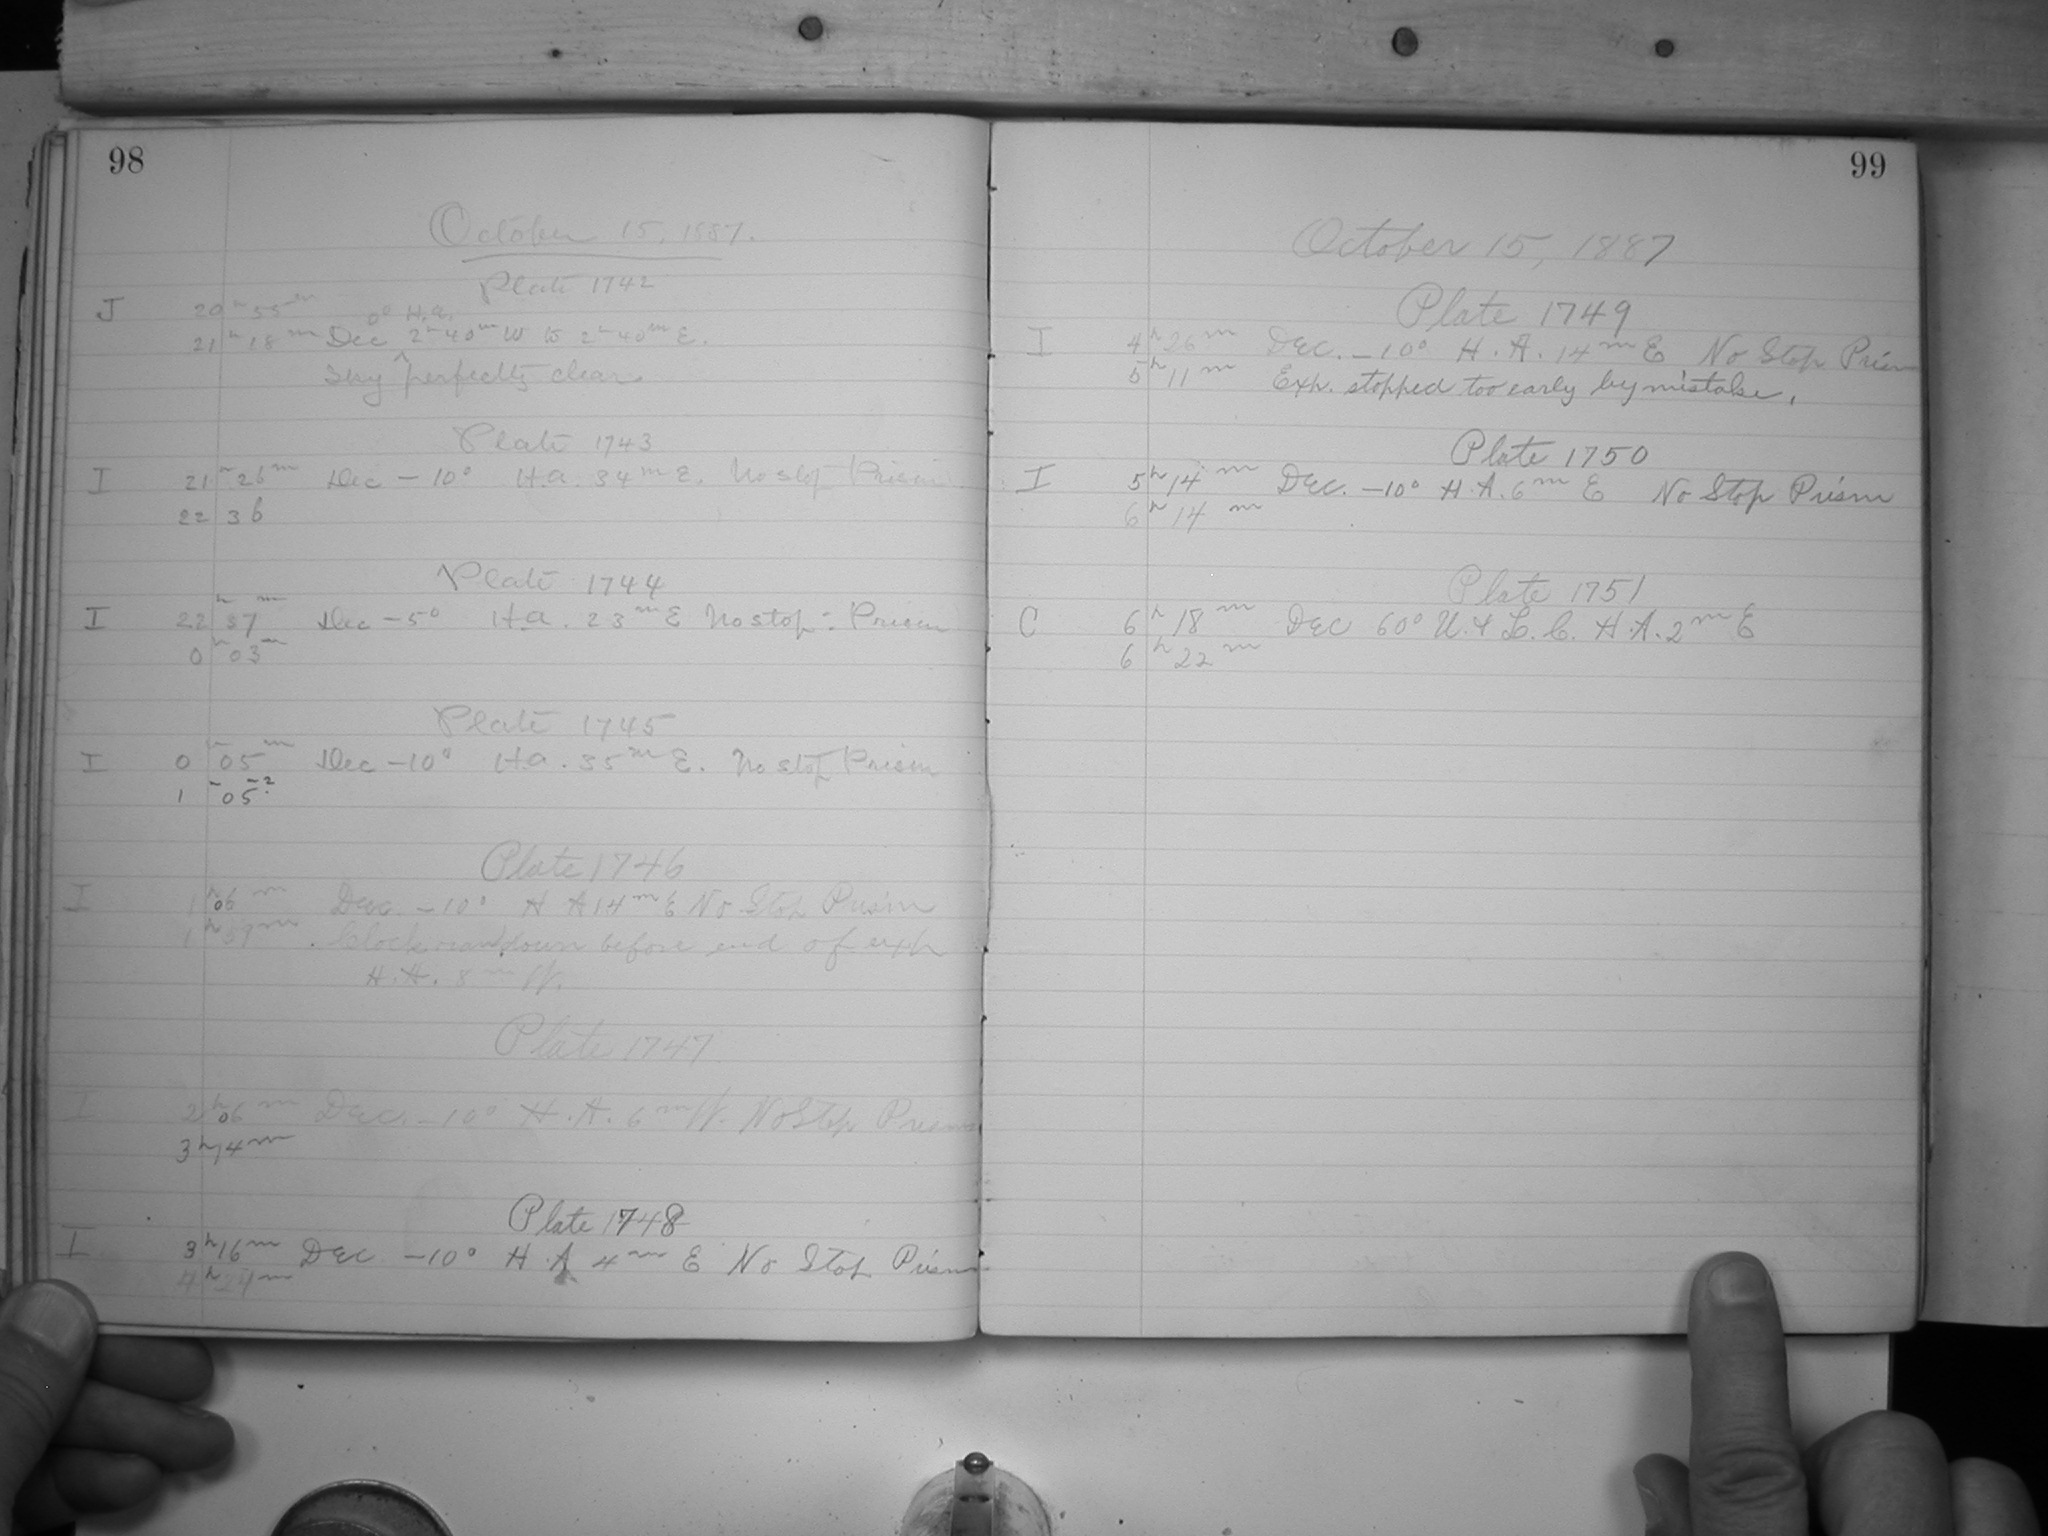 98
October 15, 1887.
Plate 1742
J 20h 55m 0° H.a.
21h 18m Dec 2h 40m W to 2h 40m E.
Sky perfectly clear
Plate 1743
I 21h 26m Dec - 10° H.a. 34m E. No stop Prism
22 36
Plate 1744
I 22h 57m Dec - 5° H.a. 23m E No stop - Prism
0h 03m
Plate 1745
I 0h 05m Dec -10° H.a. 35m E. No stop Prism
1 05?
Plate 1746
I 1h 06m Dec. -10° H A 14m E No Stop Prism
1h 59m Clock ran down before end of exp
H.A. 8m W.
Plate 1747
I 2h 06m Dec. -10° H.A. 6m W. No Stop Prism
3h 14m
Plate 1748
I 3h 16m Dec -10° H.A 4m E No Stop Prism
4h 24m
99
October 15, 1887
Plate 1749
I 4h 26m Dec. -10° H.A. 14m E No Stop Prism
5h 11m Exp. stopped too early by mistake.
Plate 1750
I 5h 14m Dec. -10° H.A. 6m E No Stop Prism
6h 14m
Plate 1751
C 6h 18m Dec 60° U. & L. C. H.A. 2m E
6h 22m